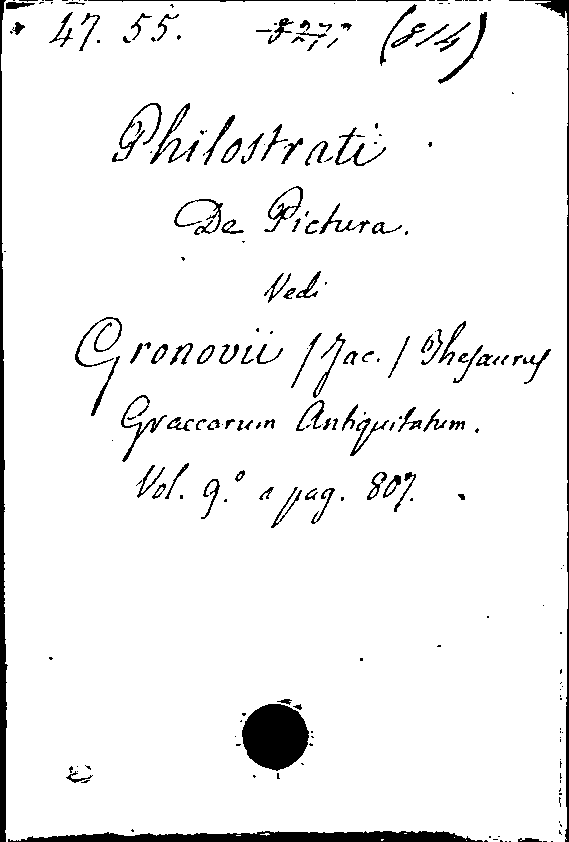 47. 55. 827, (814)
Philostrati
De Pictura.
Vedi
Gronovii /Jac./ Thesaurus
Graecorum Antiquitatum.
Vol. 9.º a pag. 807.